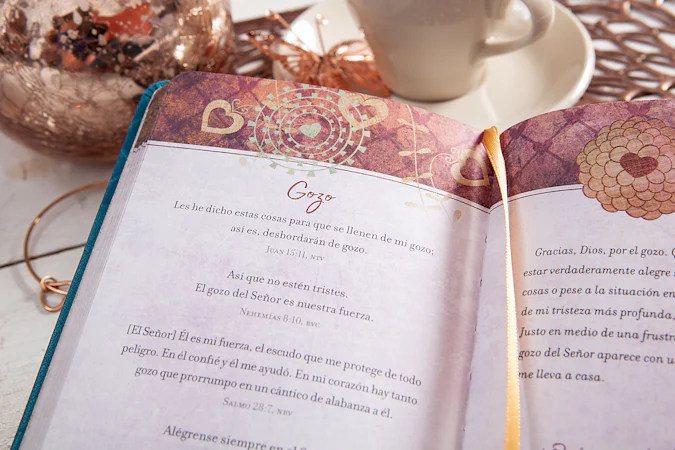 Gozo
Les he dicho estas cosas para que se llenen de mi gozo;
así es, desbordarán de gozo.
Juan 15:11, ntv
Así que no estén tristes.
El gozo del Señor es nuestra fuerza.
Nehemías 8:10, bvc
[El Señor] Él es mi fuerza, el escudo que me protege de todo
peligro. En él confié y él me ayudó. En mi corazón hay tanto
gozo que prorrumpo en un cántico de alabanza a él.
Salmo 28:7, nbv
Alégrense siempre en el
Gracias, Dios, por el gozo.
estar verdaderamente alegre
cosas o pese a la situación en
de mi tristeza más profunda,
Justo en medio de una
gozo del Señor aparece con
me lleva a casa.